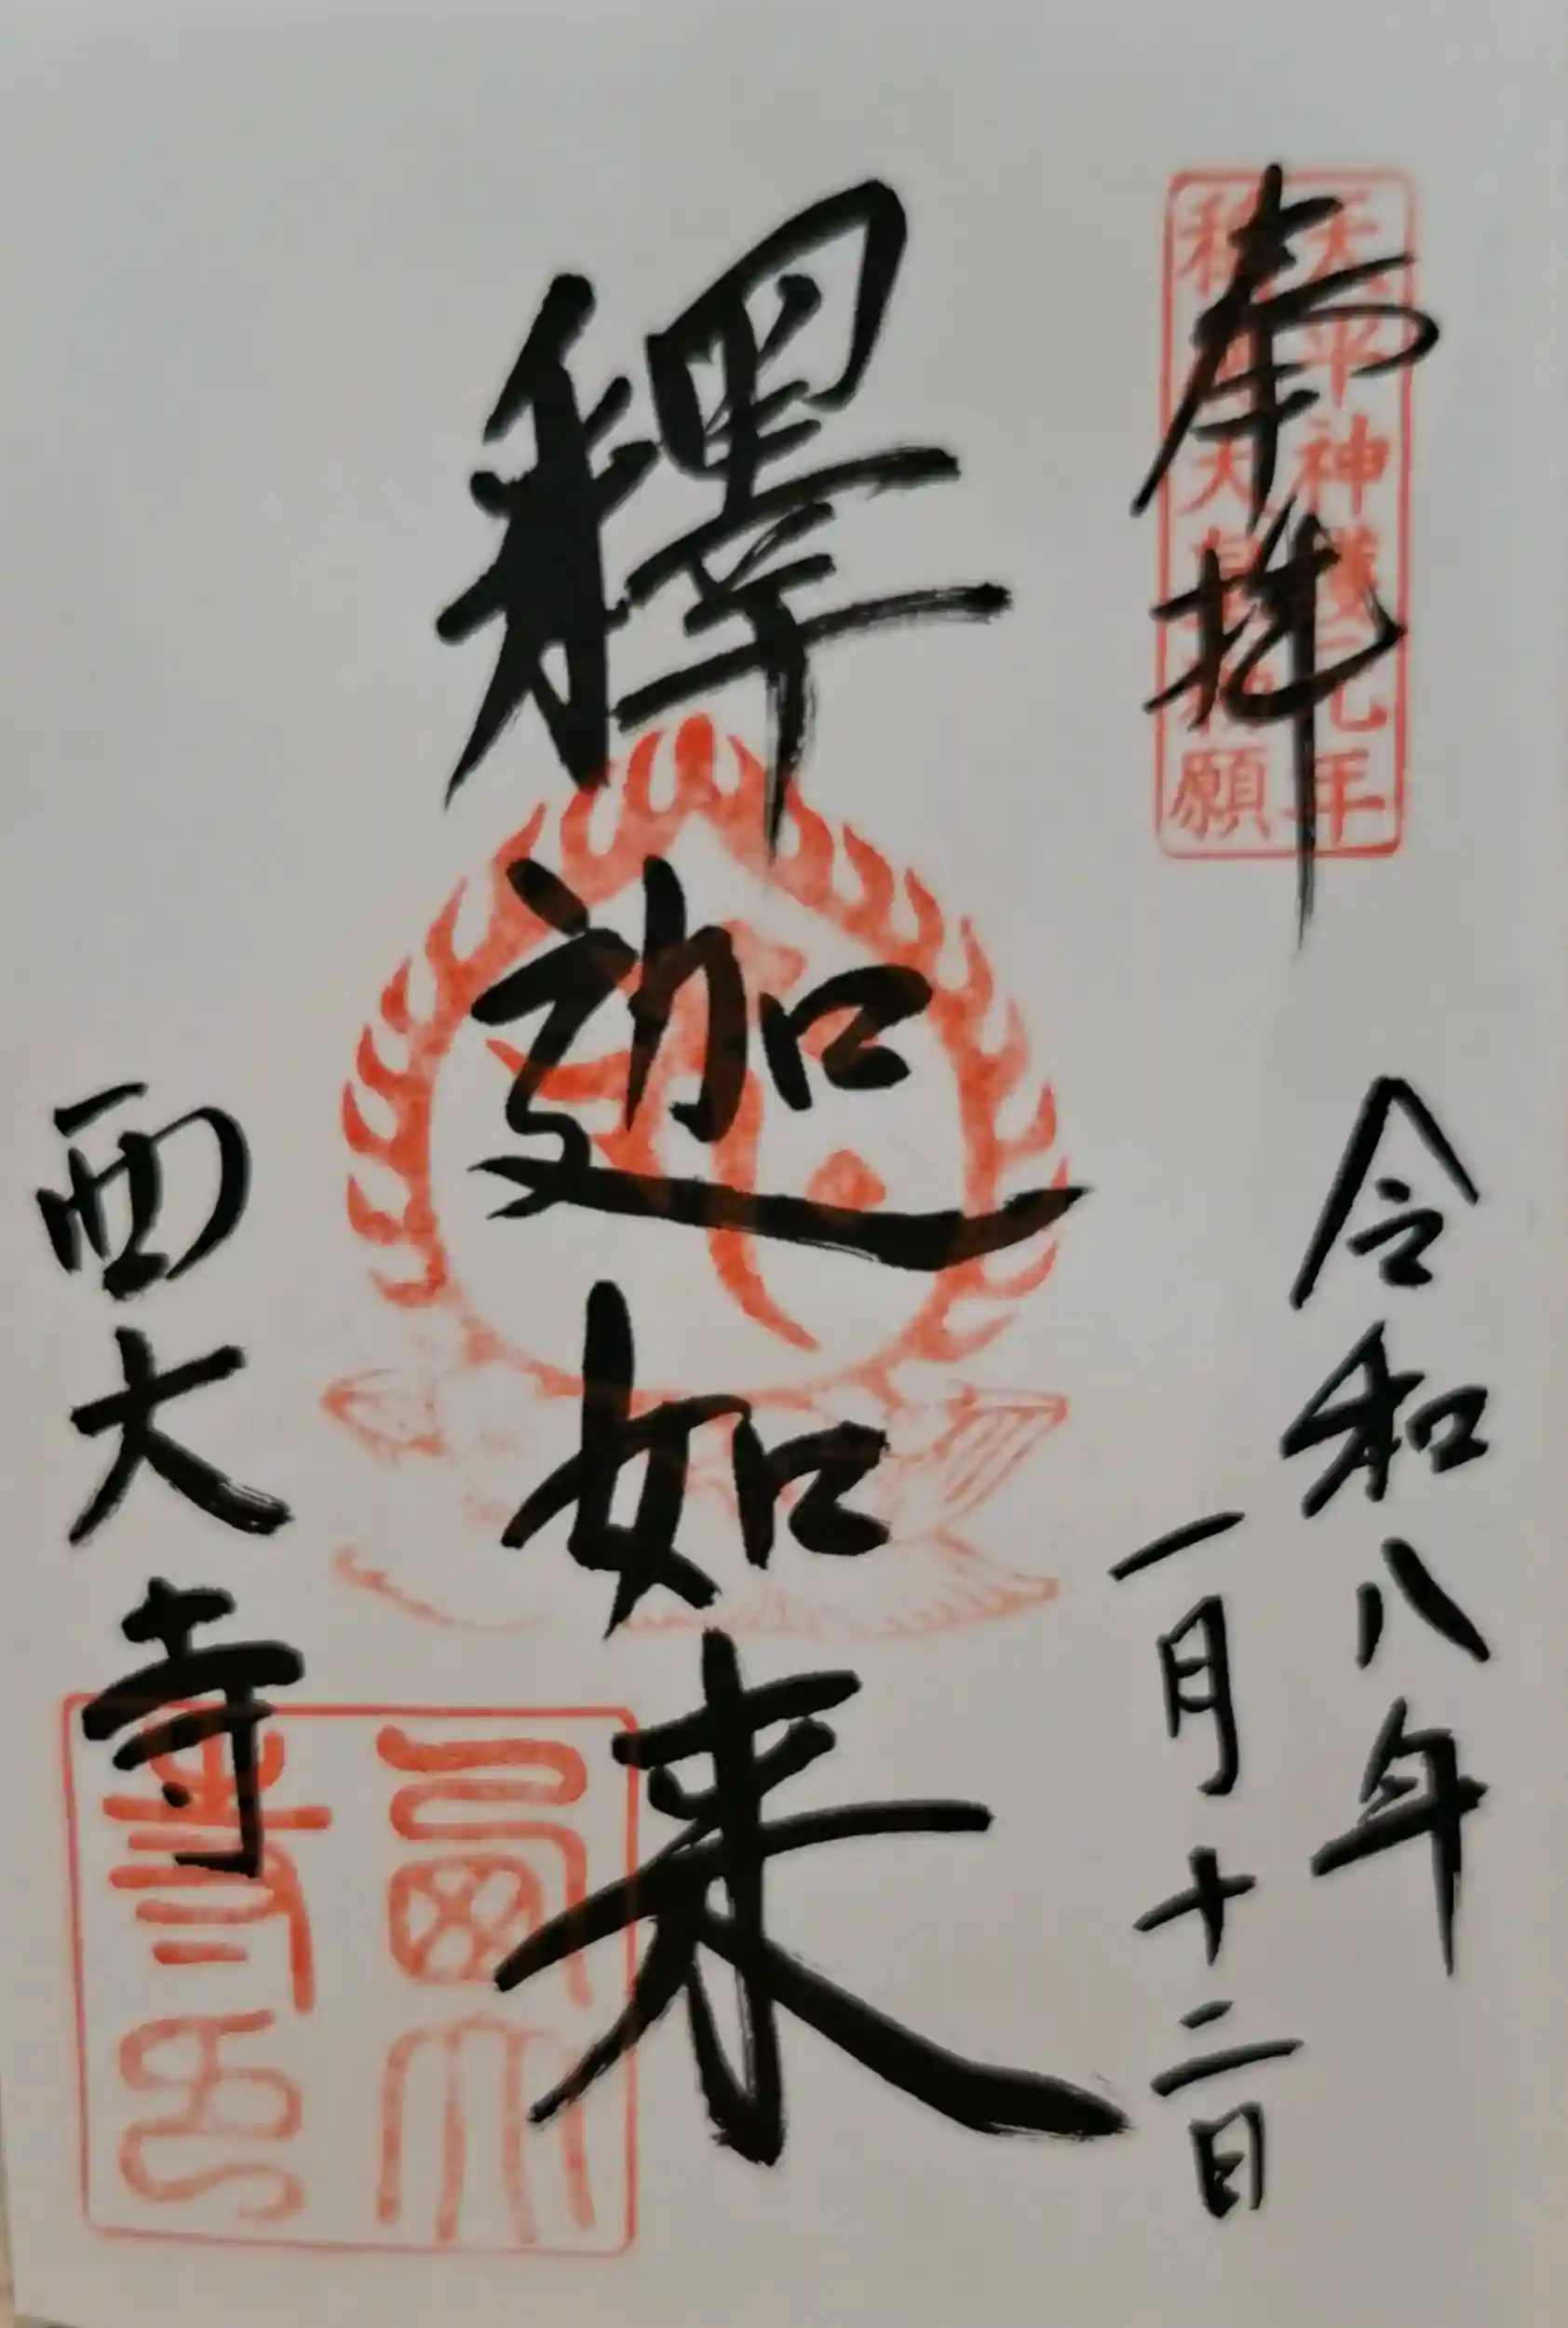 奉拝
天平神護元年
称徳天皇勅願
令和八年
一月十二日
釋迦如来
西大寺
西大寺印